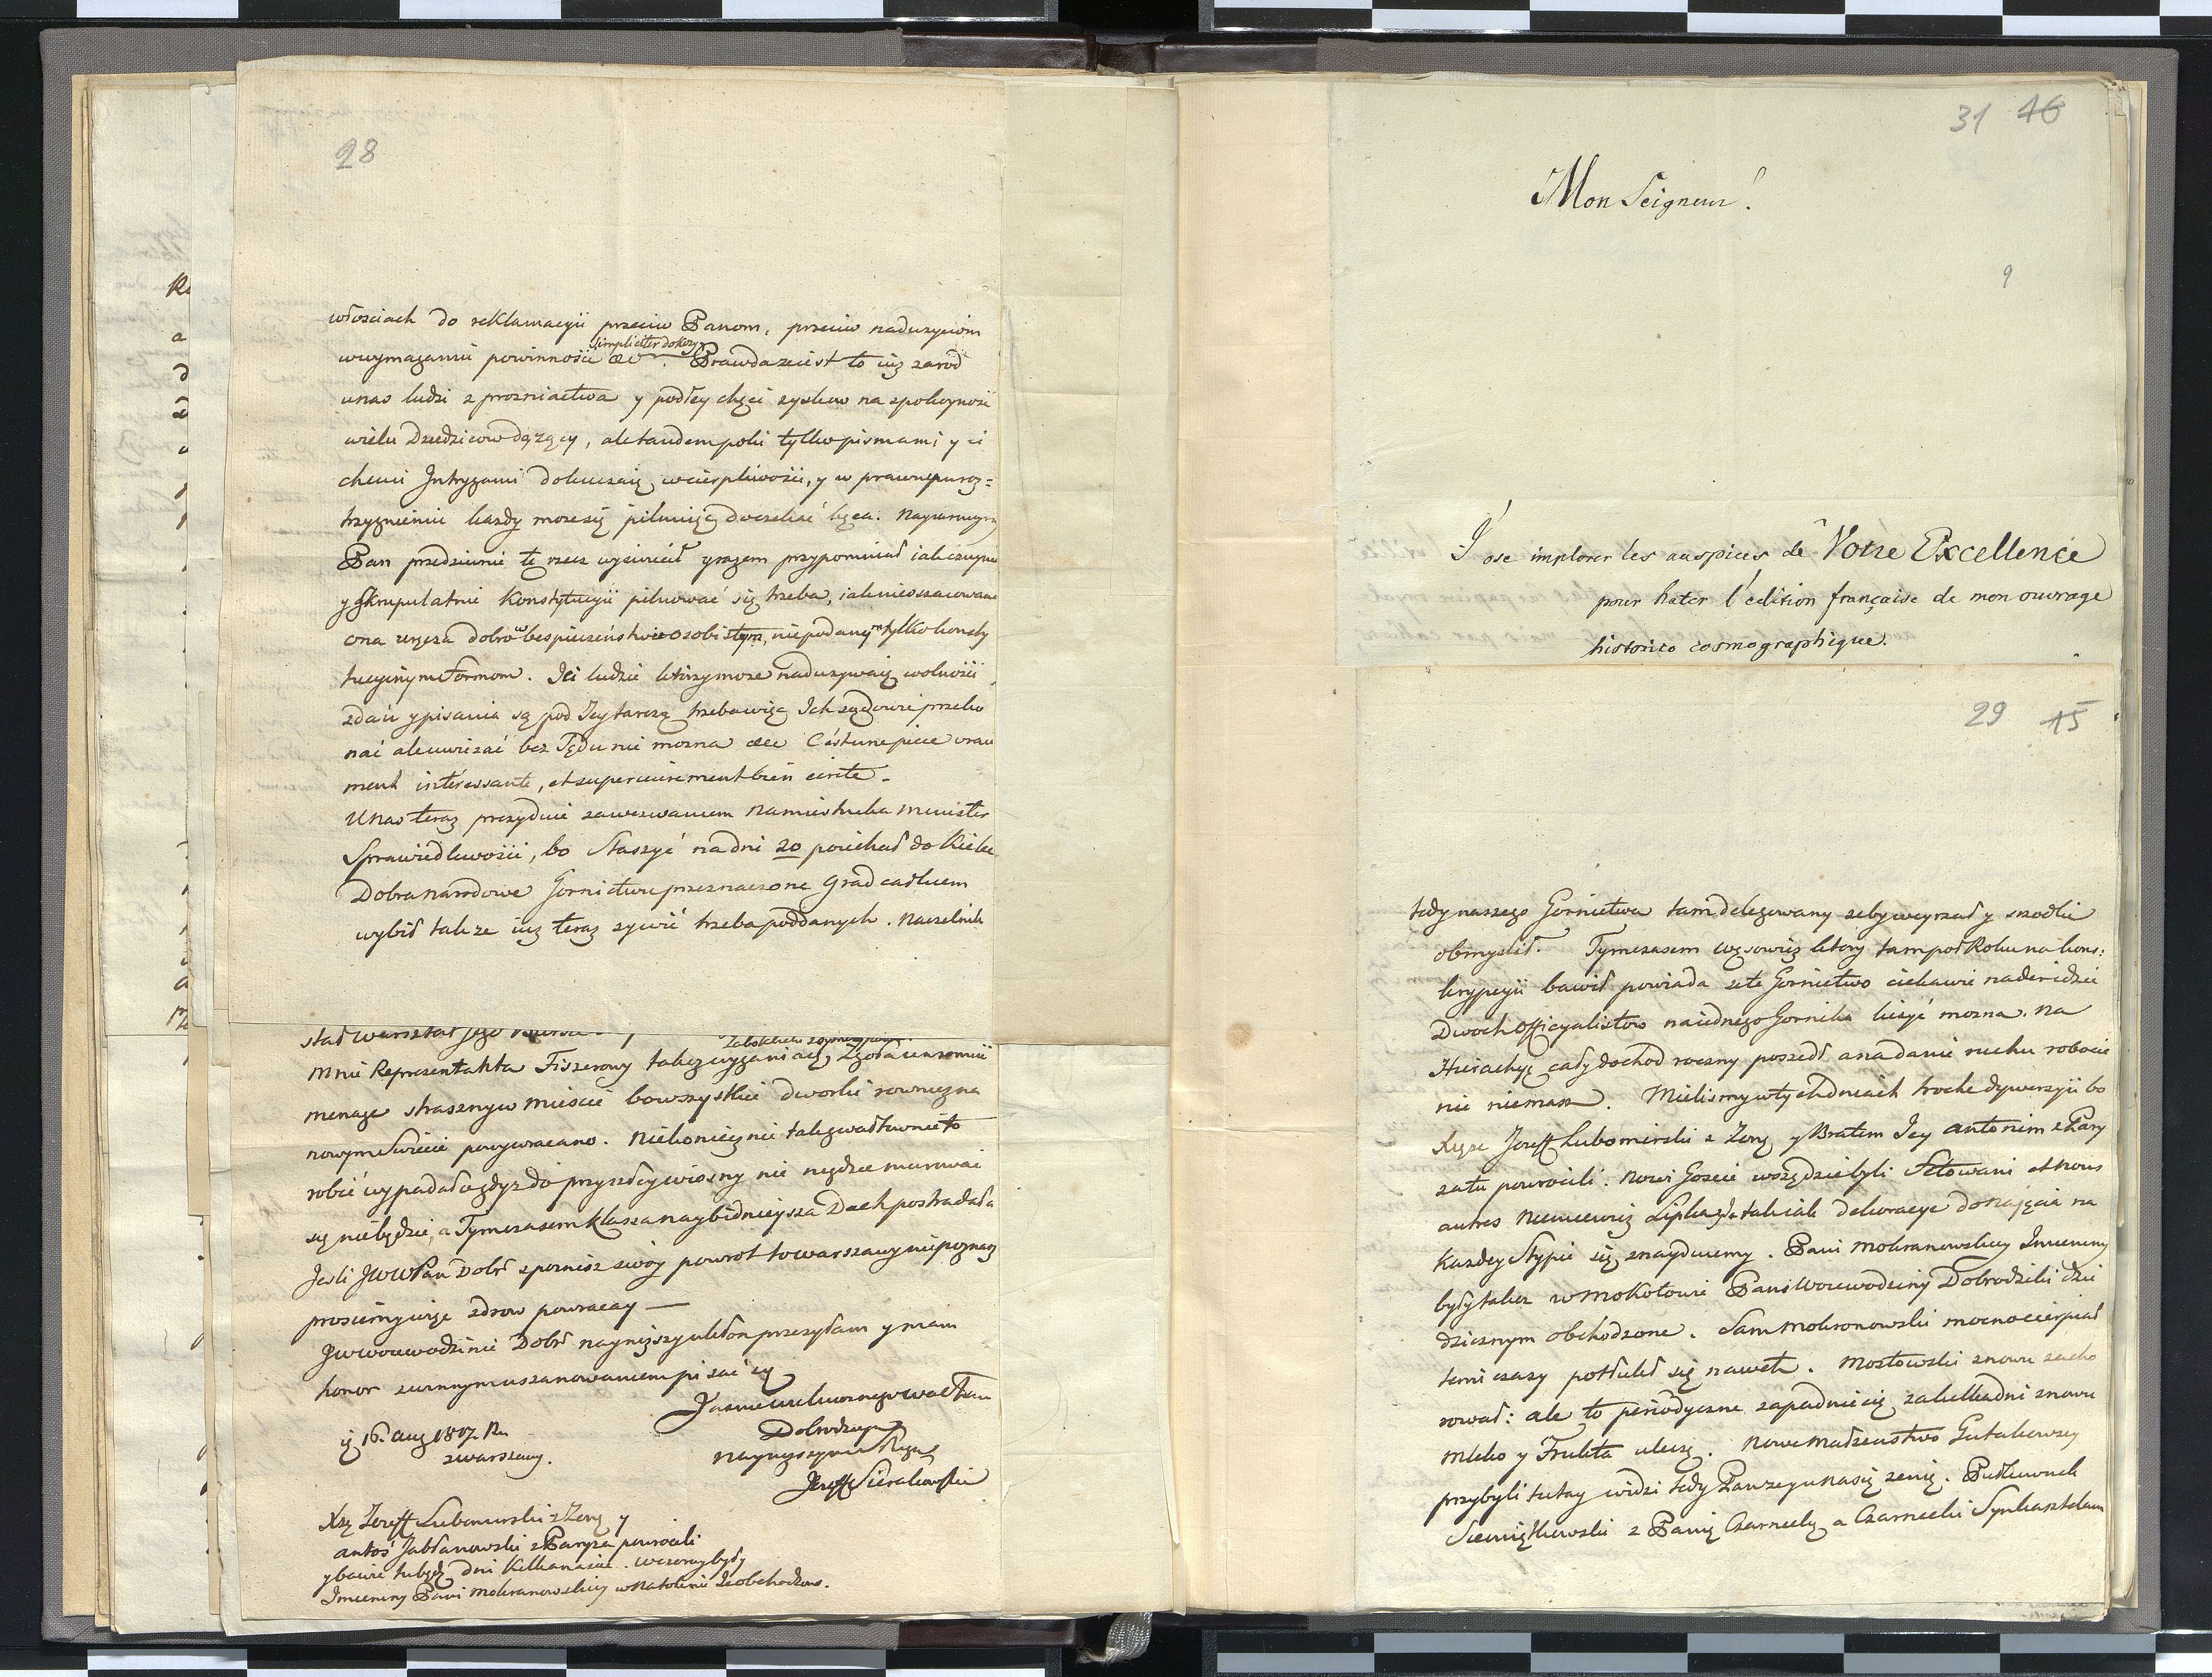 28
włosciach do reklamacyii przeciw Panom, przeciw naduzyciom
simpliciter dokozy
wwymaganiu powinnosci &c. Prawda ze iest to iuz zarod
unas ludzi z prozniactwa y podłey chęci zyskow na spokoynosc
wielu Dziedzicow dązący, ale tandem poki tylko pismami y ci
chemi Intrygami dokuczaią wcierpliwosci, y w prawne poroz=
trzygnienie kazdy moze się pilnuiąc doczekac końca.
Pan przedziwnie tę rzecz wyswiecił y razem przypominał iak czuyne
y skrupulatnie Konstytucyii pilnowac się trzeba, iak nieoszacowane
ona ręcza dobro w bespieczenstwie osobistym, niepodanym tylko konsty
tucyinym Formom. Jei ludzie ktorzy moze naduzywaią wolnosci
zdań y pisania są pod Jey tarczą trzeba więc Ich sądowie przeko
nac ale uwizać bez Sądu nie mozna &c C'est une piece vrai
ment intéressante, et superieurement bien écrite.
Unas teraz prezyduie za wezwaniem Namiestnika Minister
Sprawiedliwosci, bo Staszyc na dni 20 poiechał do Kielc
Dobra narodowe Gornictwu przeznaczone Grad całkiem
wybił tak ze iuz teraz zywić trzeba poddanych. Naczelnik
stał warsztat Jego
mnie Reprezentanta Fiszerowy takze wyganiaią,
menage straszny w miescie bo wszystkie dworki rowniez na
nowym Swiecie powywracano. Niekoniecznie tak gwałtownie to
robić wypadało gdyz do przyszłey wiosny nic nigdzie murować
się niebędzie, a Tymczasem Klassa naybidnieysza Dach postradała
Jesli JWWPan Dobr spozniesz swoy powrot to Warszawy niepoznasz
prosiemy więc zdrow powracay —
JWWoiewodzinie Dobr nayniszy ukłon przesyłam y mam
honor z winnym uszanowaniem pisać się
Jasnie Wielmoznego WacPan
Dobrodzieja
Nayniszym Sługą
Jozeff Sierakowski
16. Aug 1817. R.
z Warszawy.
Xżę Jozeff Lubomirski z Zoną y
Antoś Jabłonowski z Paryza powrocili
y bawić tu będą dni Kilkanascie. Wczoray były
Imieniny Pani Mokranowskiey w Natolinie obchodzone.
31 46
Mon Seigneur!
9
J'ose implorer les auspices de Votre Excellence
pour hater l'edition française de mon ouvrage
historico cosmographique.
29 45
tedy naszego Gornictwa tam delegowany zeby weyrzał y srodki
obmyslił. Tymczasem Węsowicz ktory tam poł Roku na kons:
krypcyii bawił powiada ze te Gornictwo ciekawie nader idzie
Dwoch Officyalistow na iednego Gornika liczyć mozna. Na
Hierachyę cały dochod roczny poszedł a na danie ruchu robocie
nic niemasz. Mielismy w tych dniach troche dywersyii bo
Xiąze Jozeff Lubomirski z Zoną y Bratem Jey Antonim z Pary
za tu powrocili. Nowi Goscie wszędzie byli Fetowani et nous
autres Niemcewicz Lipka et tak iak dekoracye do najęcia na
Kazdey Stypie się znayduiemy. Pani Mokranowskiey Imieniny
były takze w Mokotowie Pani Woiewodziny Dobrodziki dzie
dzicznym obchodzone. Sam Mokronowski mocno cierpiał
temi czasy potłukł się nawet. Mostowski znowu zacho
rował: ale to periodyczne zapadnięcie, za kilka dni znowu
mleko y Frukta uleczą. Nowe Małzenstwo Gutakowscy
przybyli tutay widzi tedy Pan ze y u nas się zenią. Pułkownik
Siemiątkowski z Panią Czarnecką a Czarnecki Syn Kasztelana